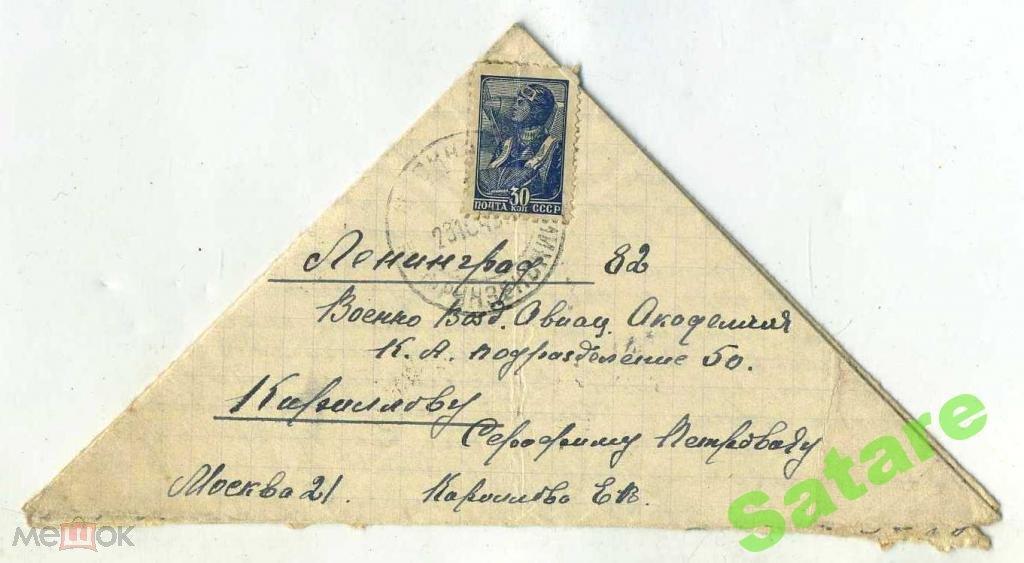 30
ПОЧТА КОП СССР
Ленинград 82
Военно Возд. Авиац. Академия
К. А. подразделение 50.
Кириллову
Серафиму Петровичу
Москва 21. Кириллова Е В.
Satare
мешок